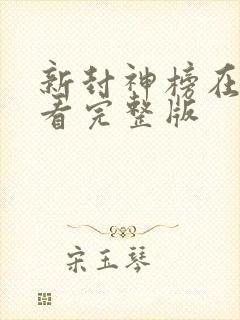 新封神榜在
看完整版
宋玉琴